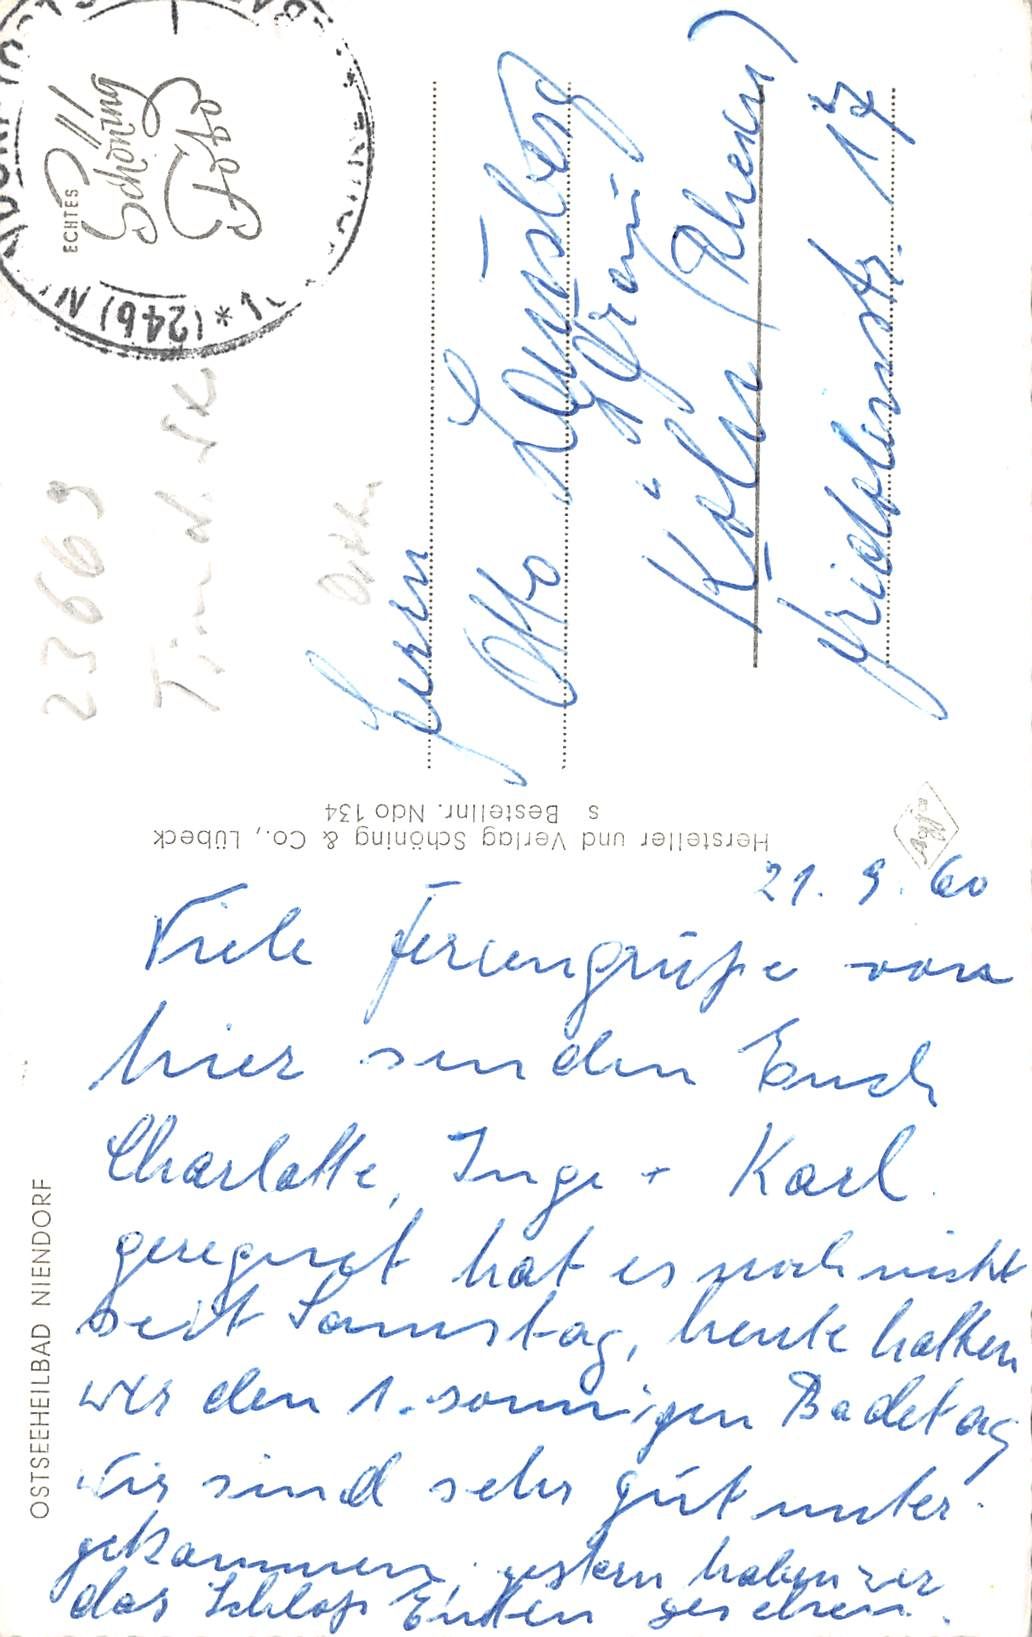 21. 9. 60
Viele Feriengrüße von
hier senden Euch
Charlotte, Inge + Karl.
geregnet hat es noch nicht
seit Samstag, heute hatten
wir den 1. sonnigen Badetag
Wir sind sehr gut unter-
gekommen, gestern haben wir
das Schloß Eutin gesehen.
OSTSEEHEILBAD NIENDORF
Hersteller und Verlag Schöning & Co., Lübeck
s Bestellnr. Ndo 134
Agfa
ECHTES
Schöning
Foto
*(24b) N
Herrn
Otto
Köln (Rhein)
Fridolinstr. 17
23669